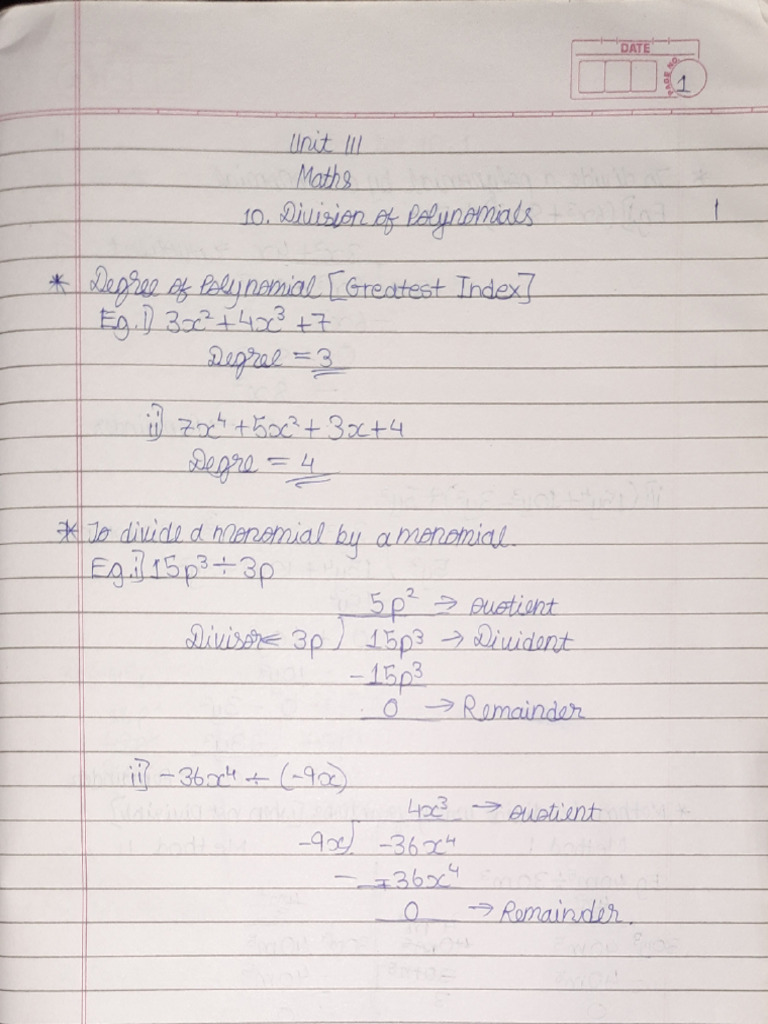 DATE
PAGE NO. 1
Unit III
Maths
10. Division of Polynomials
* Degree of Polynomial [Greatest Index]
Eg. i] 3x² + 4x³ + 7
Degree = 3
ii] 7x⁴ + 5x² + 3x + 4
Degre = 4
* To divide a monomial by a monomial.
Eg. i] 15p³ ÷ 3p
5p² → quotient
Divisor ← 3p ) 15p³ → Divident
- 15p³
0 → Remainder
ii] - 36x⁴ ÷ (-9x)
4x³ → quotient
-9x ) -36x⁴
- ∓36x⁴
0 → Remainder.